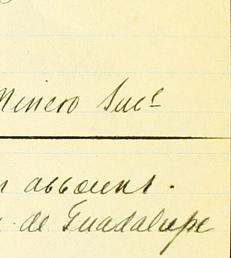 Minero Sucs
account.
de Guadalupe